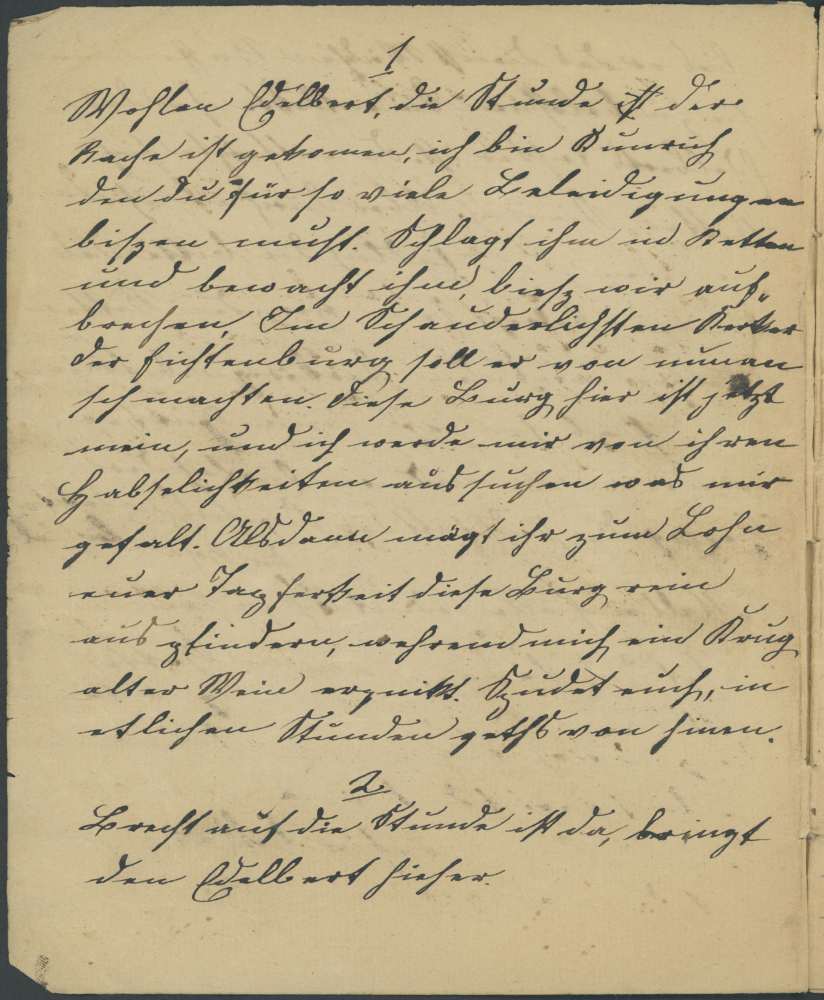 1
Wohlan Edelbert, die Stunde ist der
Rache ist gekomen, ich bin Kunrich
den du für so viele Beleidigungen
biszen must. Schlagt ihm in Ketten
und bewacht ihm, biesz wir auf„
brechen, Im Schauderlichsten Kerker
der Fichtenburg soll er von nun an
schmachten. Diese Burg hier ist jetzt
mein, und ich werde mir von ihren
Habselichkeiten aussuchen was mir
gefalt. Alsdann mögt ihr zum Lohn
euer Tapferkeit diese Burg rein
aus plindern, wehrend mich ein Krug
alter Wein erquikt. Spudet euch, in
etlichen Stunden geths von hinen.
2
Brecht auf die Stunde ist da, bringt
den Edelbert hieher.